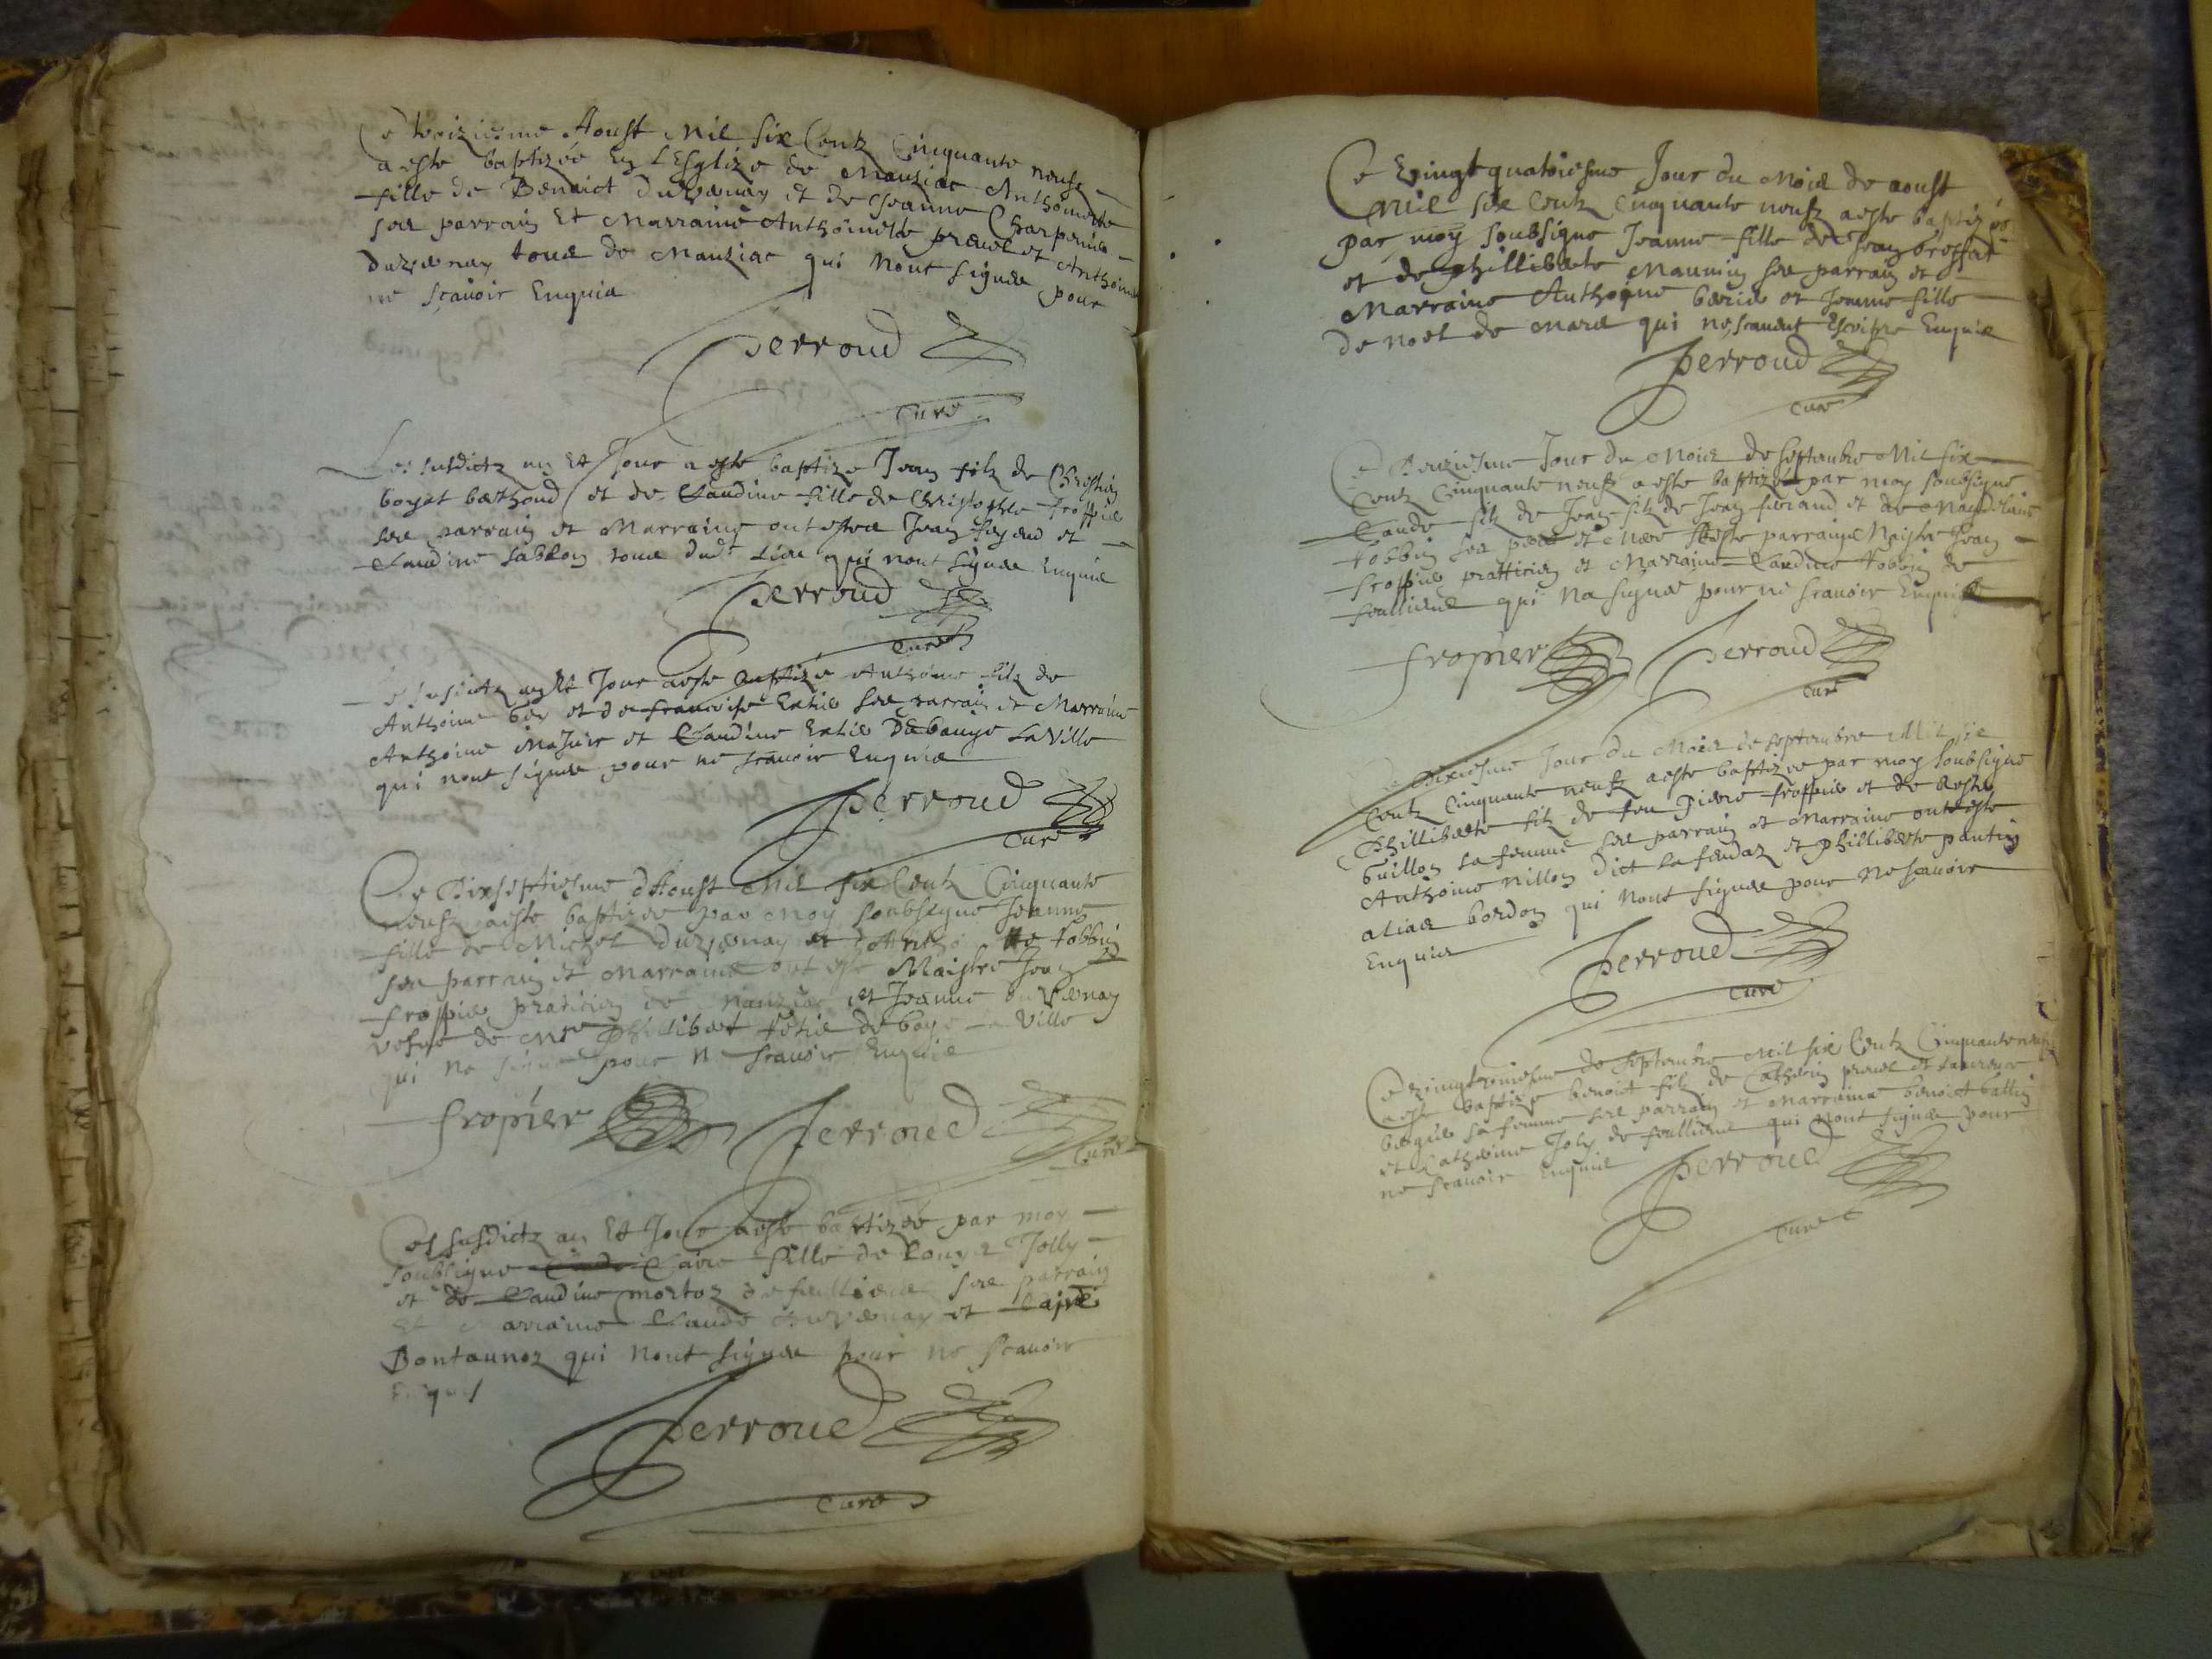 Ce treiziesme Aoust Mil six Centz Cinquante neufz
a esté baptizée En L'Esglize de Manziac Anthoinette
fille de Benoict Duvernay et de Jeanne Charpenie
ses parrain Et Marraine Anthoinette prevel et Anthoine
Duvernay tous de Manziac qui Nont signes pour
ne sçavoir Enquis
Perroud
curé
Les susdictz an Et Jour a esté baptizé Jean filz de
boyat berthoud et de Claudine fille de Christophle froppier
ses parrain et Marraine ont estes Jean et
Claudine sablon tous dud. Lieu qui nont signes Enquis
Perroud
curé
susdictz an Et Jour a esté baptizé Anthoine filz de
Anthoine bey et de francoise ses parrain et Marraine
Anthoine et Claudine De bauge La Ville
qui nont signes pour ne scavoir Enquis
Perroud
curé
Ce Dixseptiesme d'Aoust Mil six Centz Cinquante
neufz a esté baptizée par Moy soubsigne Jeanne
fille de Michel Duvernay et d'Antho tte Robbin
ses parrain et Marraine ont esté Maistre Jean
froppier praticien de Manziac et Jeanne Duvernay
vefve de Mre Philibert de bauge La Ville
qui Na signé pour Ne scavoir Enquis
fropier Perroud
curé
Les susdictz an Et Jour a esté baptizée par moy
soubsigne Claire fille de Louys Jolly
et de Claudine mortoz de feulliens ses parrain
Et Marraine Claude Duvernay et Claire
Bontaunoz qui Nont signes pour ne scavoir
Enquis
Perroud
curé
Ce Vingtquatriesme Jour du Mois de aoust
Mil six Centz Cinquante neufz a esté baptizée
par moy soubsigne Jeanne fille de Jean brossat
et de philliberte Maunin ses parrain et
Marraine Anthoine et Jeanne fille
de noel de mares qui ne scavent Escripre Enquis
Perroud
curé
Ce Jour du Mois de septembre Mil six
Centz Cinquante neufz a esté baptizé par moy soubsigne
Claude filz de Jean filz de Jean feraud et de Magdelaine
Robbin ses pere et Mere Et esté parrain Maistre Jean
froppier pratticien et Marraine Claudine Robbin de
feulliens qui Na signé pour ne scavoir Enquise
fropier Perroud
curé
Ce Dixiesme Jour du Mois de septembre Mil six
Centz Cinquante neufz a esté baptizée par moy soubsigne
Philliberte filz de feu Pierre froppier et de
Guillon sa femme ses parrain et Marraine ont esté
Anthoine nillon Dict La feudaz et philliberte pantin
alias bordon qui Nont signes pour Ne scavoir
Enquis
Perroud
curé
Ce vingtroisiesme de septembre Mil six Centz Cinquante neufz
a esté baptizé benoist filz de Catherin prevel et Laurence
sa femme ses parrain et marraine benoict battin
et Catherine Joly de feulliens qui Nont signes pour
ne scavoir Enquis
Perroud
curé